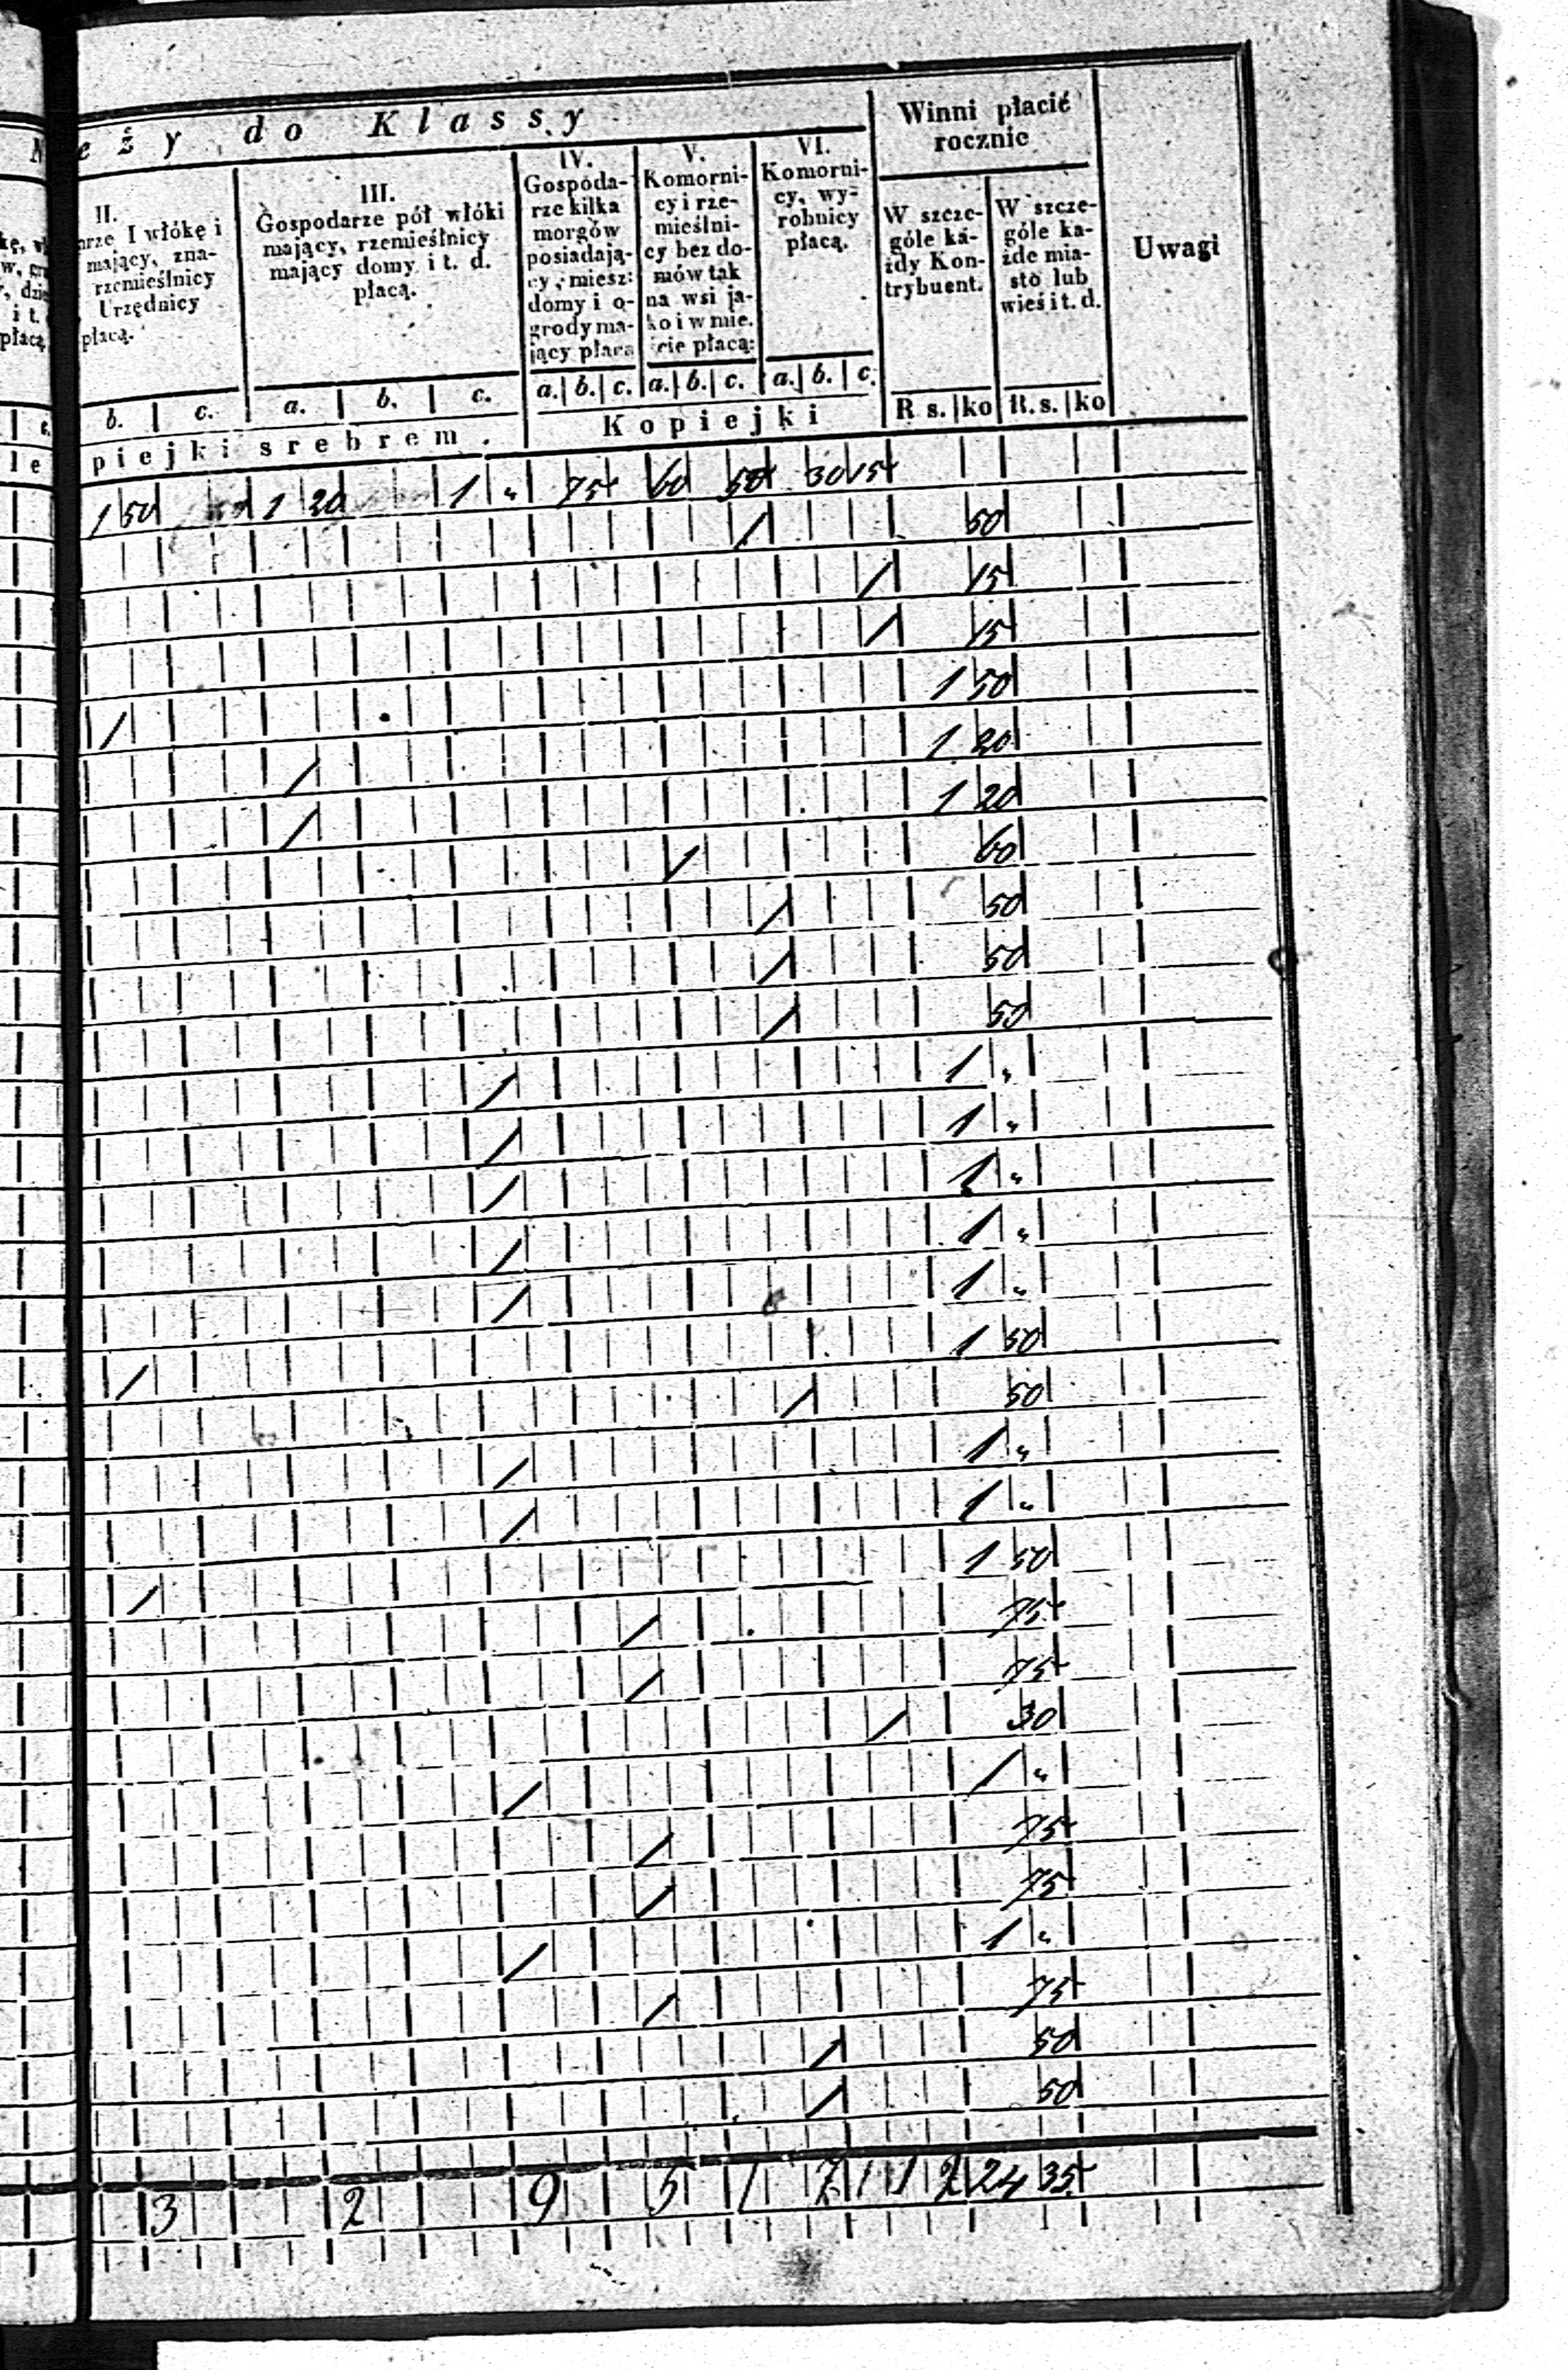 e ż y do Klassy
Winni płacić
rocznie
Uwagi
II.
arze I włókę i
mający, zna-
rzemieślnicy
Urzędnicy
płacą.
III.
Gospodarze pół włóki
mający, rzemieślnicy
mający domy i t. d.
płacą.
IV.
Gospoda-
rze kilka
morgów
posiadają-
cy, miesz:
domy i o-
grody ma-
jący płacą
V.
Komorni-
cy i rze-
mieślni-
cy bez do-
mów tak
na wsi ja-
ko i w mie.
ście płacą:
VI.
Komorni-
cy, wy-
robnicy
płacą.
W szcze-
góle ka-
żdy Kon-
trybuent.
W szcze-
góle ka-
żde mia-
sto lub
wieś i t. d.
b. c. a. b. c. a. b. c. a. b. c. a. b. c.
R s. ko R. s. ko
piejki srebrem. Kopiejki
1 50 1 20 1 „ 75 60 50 30 15
/ 50
/ 15
/ 15
/ 1 50
/ 1 20
/ 1 20
/ 60
/ 50
/ 50
/ 50
/ 1 „
/ 1 „
/ 1 „
/ 1 „
/ 1 „
/ 1 50
/ 50
/ 1 „
/ 1 „
/ 1 50
/ 75
/ 75
/ 30
/ 1 „
/ 75
/ 75
/ 1 „
/ 75
/ 50
/ 50
3 2 9 5 1 7 1 2 24 35